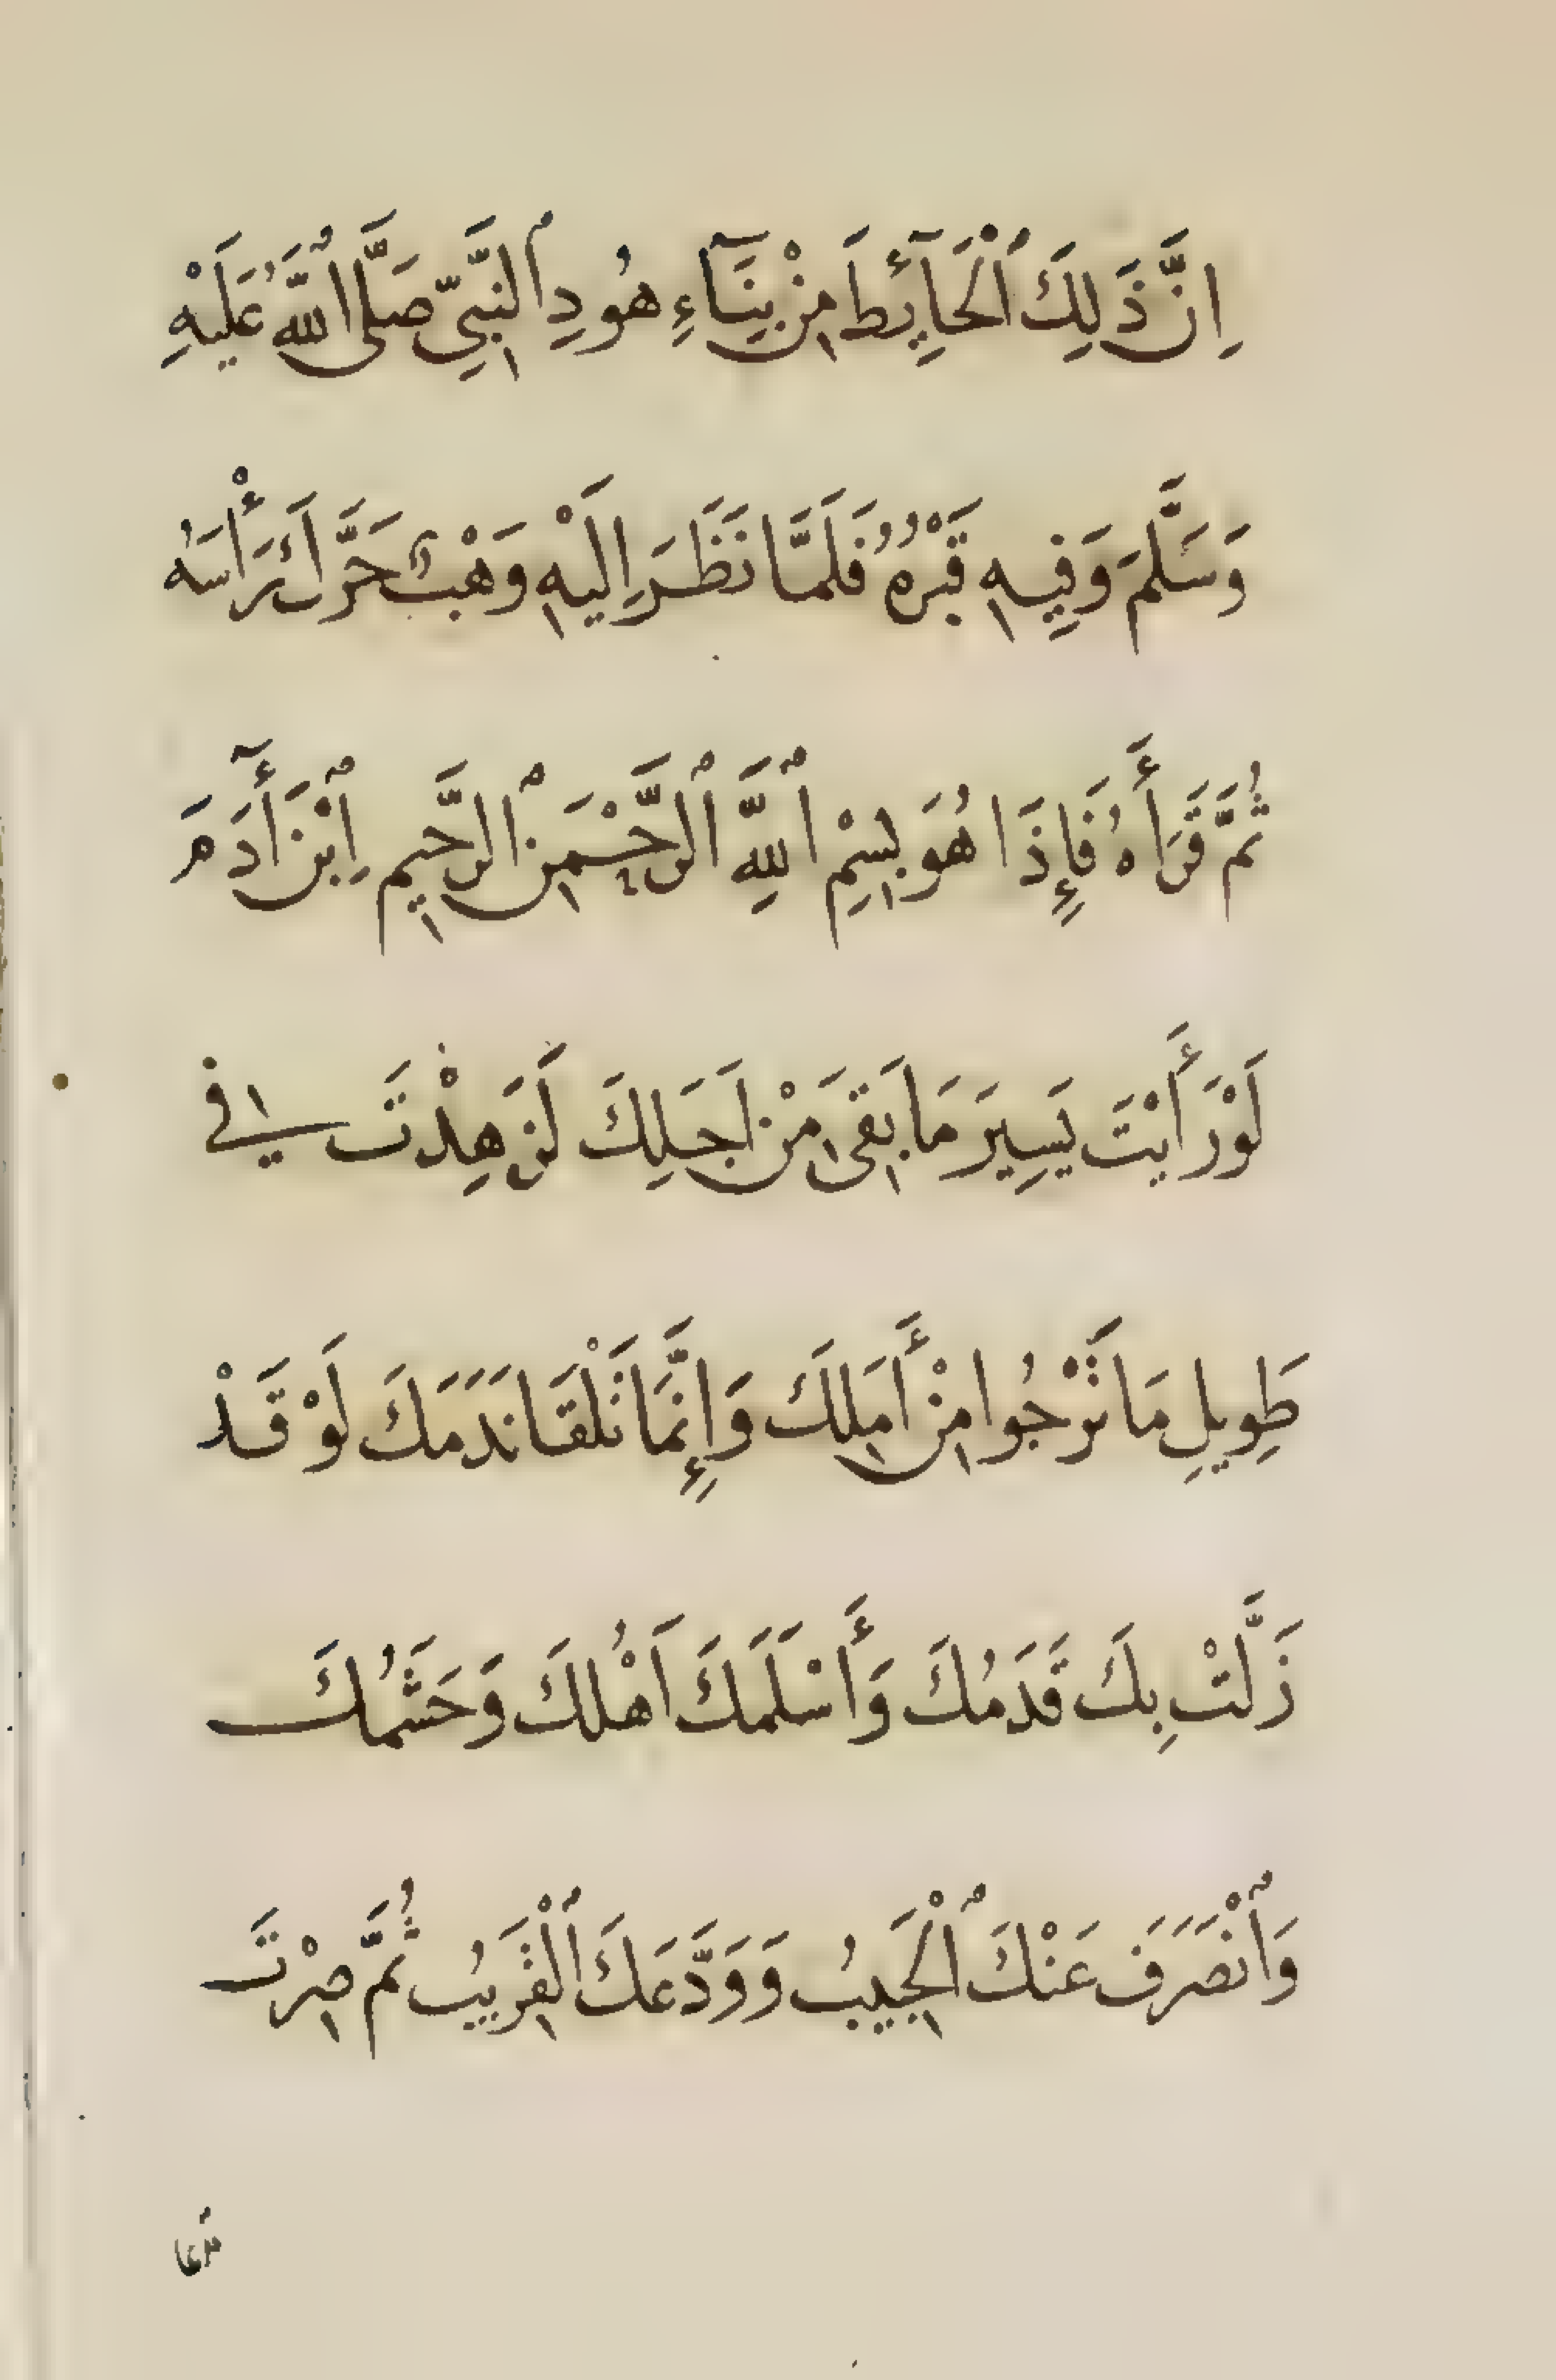 اِنَّ ذَلِكَ ٱلْحَآئِطَ مِنْ بِنَآءِ هُودِ ٱلنَّبِيِّ صَلَّى ٱللَّهُ عَلَيْهِ
وَسَلَّمَ وَفِيهِ قَبْرُهُ فَلَمَّا نَظَرَ اِلَيْهِ وَهْبٌ حَرَّكَ رَأْسَهُ
ثُمَّ قَرَاَهُ فَإِذَا هُوَ بِسْمِ ٱللَّهِ ٱلرَّحْمَنِ ٱلرَّحِيمِ اِبْنَ أَدَمَ
لَوْ رَأَيْتَ يَسِيرَ مَا بَقَى مِنْ اَجَلِكَ لَزَهِدْتَ فِي
طَوِيلِ مَا تَرْجُوا مِنْ أَمَلِكَ وَإِنَّمَا تَلْقَا نَدَمَكَ لَوْ قَدْ
زَلَّتْ بِكَ قَدَمُكَ وَأَسْلَمَكَ اَهْلُكَ وَحَشَمُكَ
وَٱنْصَرَفَ عَنْكَ ٱلْحَبِيبُ وَوَدَّعَكَ ٱلْقَرِيبُ ثُمَّ صِرْتَ